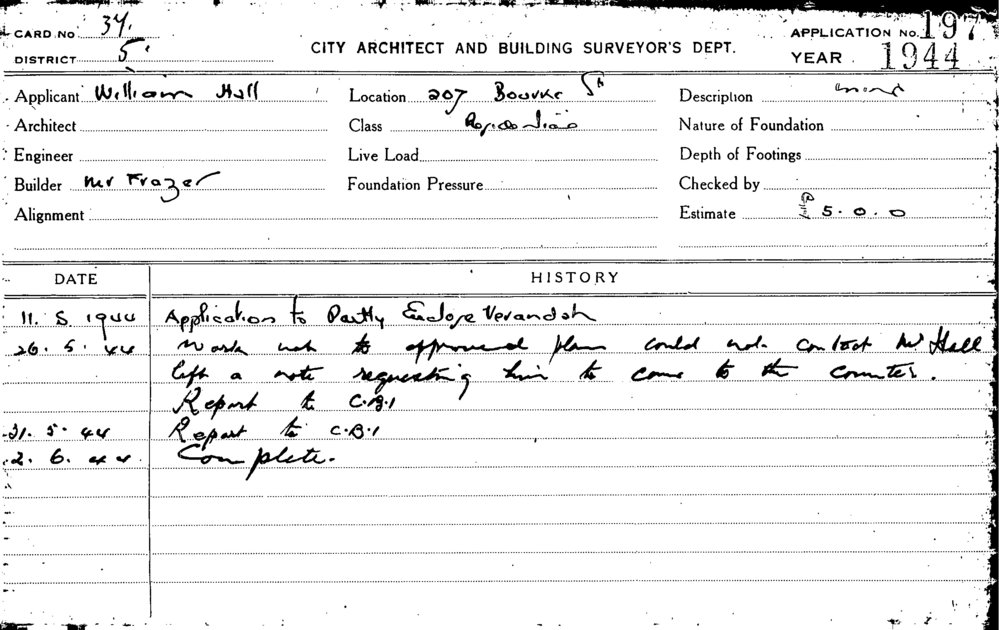 CARD No 34.
APPLICATION No. 197
DISTRICT 5.
CITY ARCHITECT AND BUILDING SURVEYOR'S DEPT.
YEAR 1944
Applicant William Hall
Location 207 Bourke St
Description
Architect
Class
Nature of Foundation
Engineer
Live Load
Depth of Footings
Builder Mr Frazer
Foundation Pressure
Checked by
Alignment
Estimate 5.0.0
DATE HISTORY
11. 5. 1944 Application to Partly Enclose Verandah
26. 5. 44 Work not to approved plan could not contact Mr Hall
left a note requesting him to come to the counter.
Report to C.B.I
31. 5. 44 Report to C.B.I
2. 6. 44. Complete.